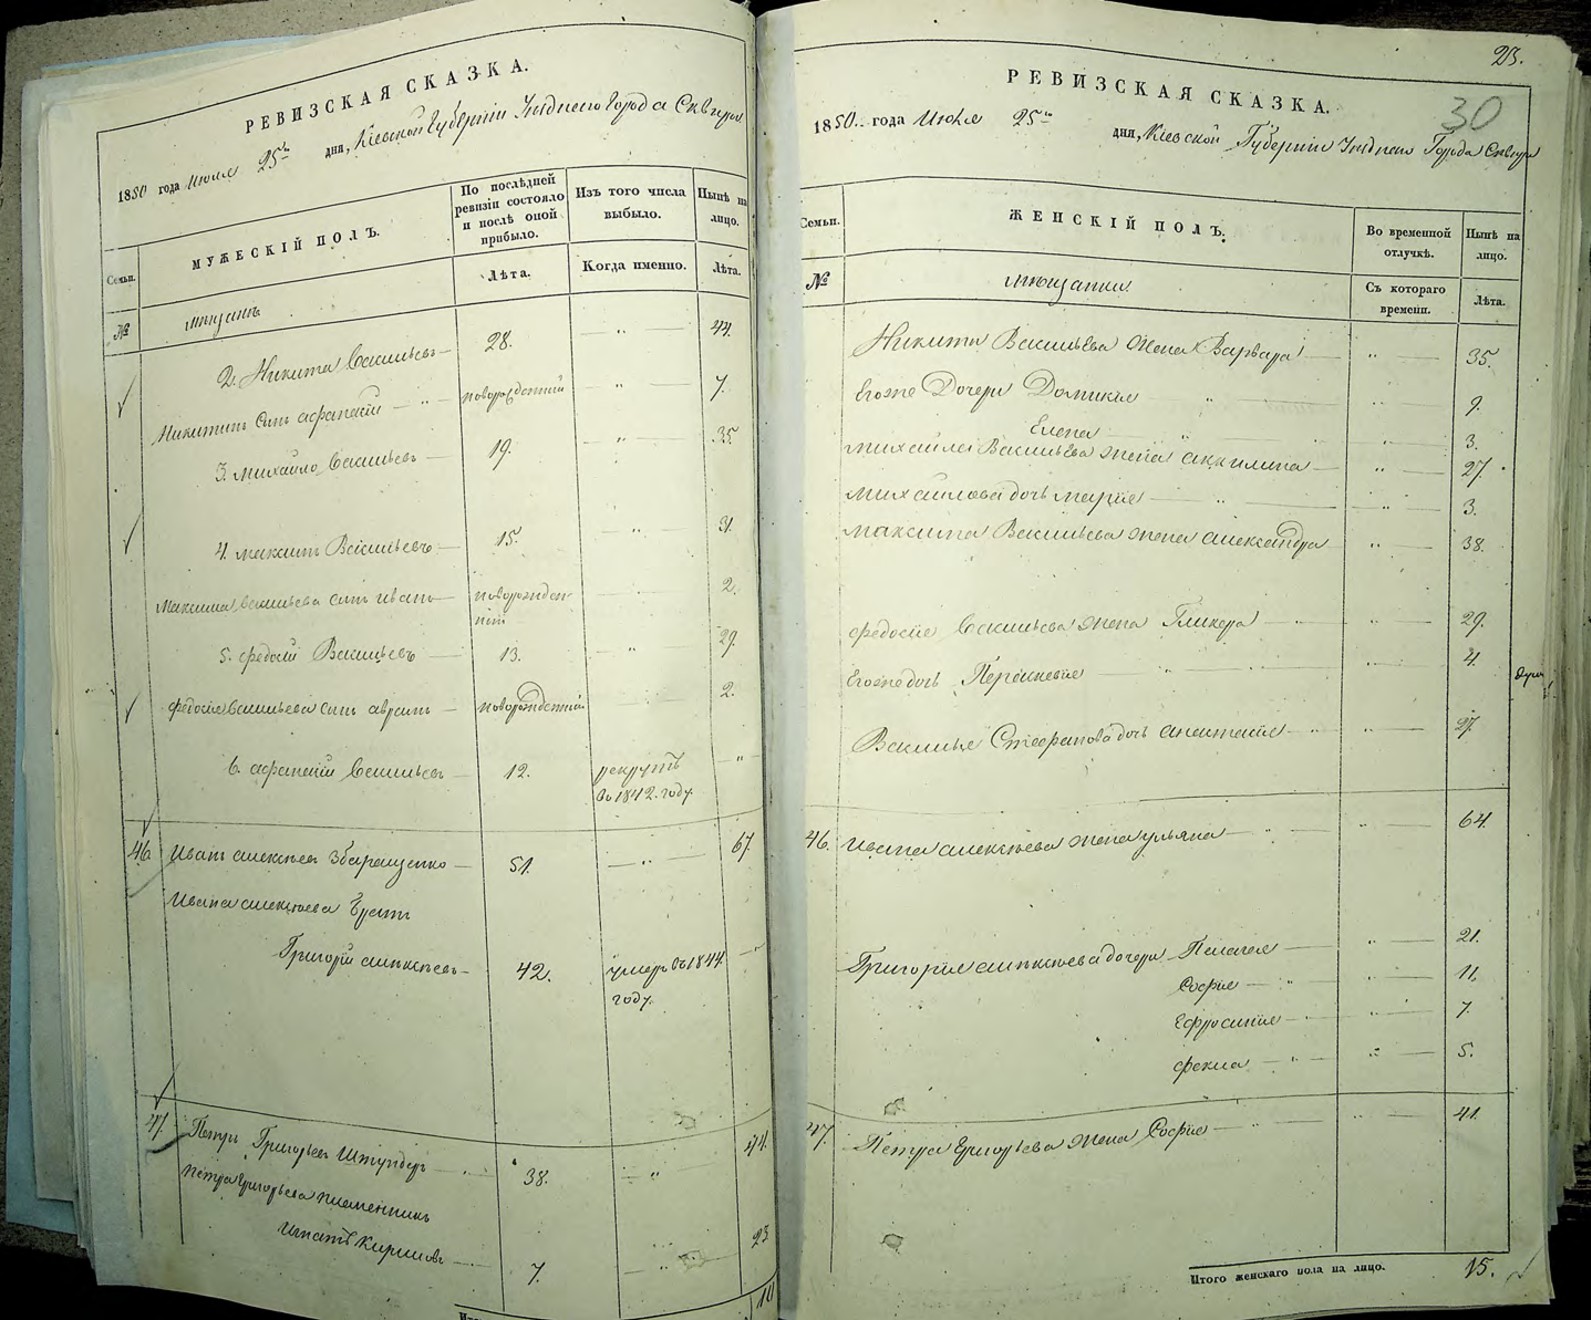 РЕВИЗСКАЯ СКАЗКА.
1850 года Июля 25го дня, Кіевской Губерніи Уѣзднаго Города Сквиры
Семьи.
МУЖЕСКІЙ ПОЛЪ.
По послѣдней ревизіи состояло и послѣ оной прибыло.
Изъ того числа выбыло.
Нынѣ на лицо.
№
мѣщанъ
Лѣта.
Когда именно.
Лѣта.
2. Никита Васильевъ 28. 44.
Никитинъ сынъ Афанасій новорожденный 7.
3. Михайло Васильевъ 19. 35
4. Максимъ Васильевъ 15. 31.
Максима Васильева сынъ Иванъ новорожденный 2.
5. Федосій Васильевъ 13. 29.
Федосія Васильева сынъ Аврамъ новорожденный 2.
6. Афанасій Васильевъ 12. рекрутъ въ 1842. году.
46. Иванъ Алексѣевъ Збаращенко 51. 67
Ивана Алексѣева братъ
Григорій Алексѣевъ 42. умеръ въ 1844 году.
47. Петръ Григорьевъ Штундеръ 38. 44.
Петра Григорьева племенникъ
Игнатъ Кириловъ 7. 23
10
23.
30
РЕВИЗСКАЯ СКАЗКА.
1850.. года Июля 25го дня, Кіевской Губерніи Уѣзднаго Города Сквиры
Семьи.
ЖЕНСКІЙ ПОЛЪ.
Во временной отлучкѣ.
Нынѣ на лицо.
№
мѣщанки
Съ котораго времени.
Лѣта.
Никиты Васильева жена Варвара 35.
Егоже Дочери Домникія 9.
Елена 3.
Михайлы Васильева жена Акилина 27.
Михайлова дочь Марія 3.
Максима Васильева жена Александра 38.
Федосія Васильева жена Гликера 29.
Егоже дочь Параскевія 4.
Василья Стефанова дочь Анастасія 27.
46. Ивана Алексѣева жена Ульяна 64.
Григорія Алексѣева дочери Пелагея 21.
Софія 11.
Ефросинія 7.
Фекла 5.
47. Петра Григорьева жена Софія 41.
Итого женскаго пола на лицо. 15.